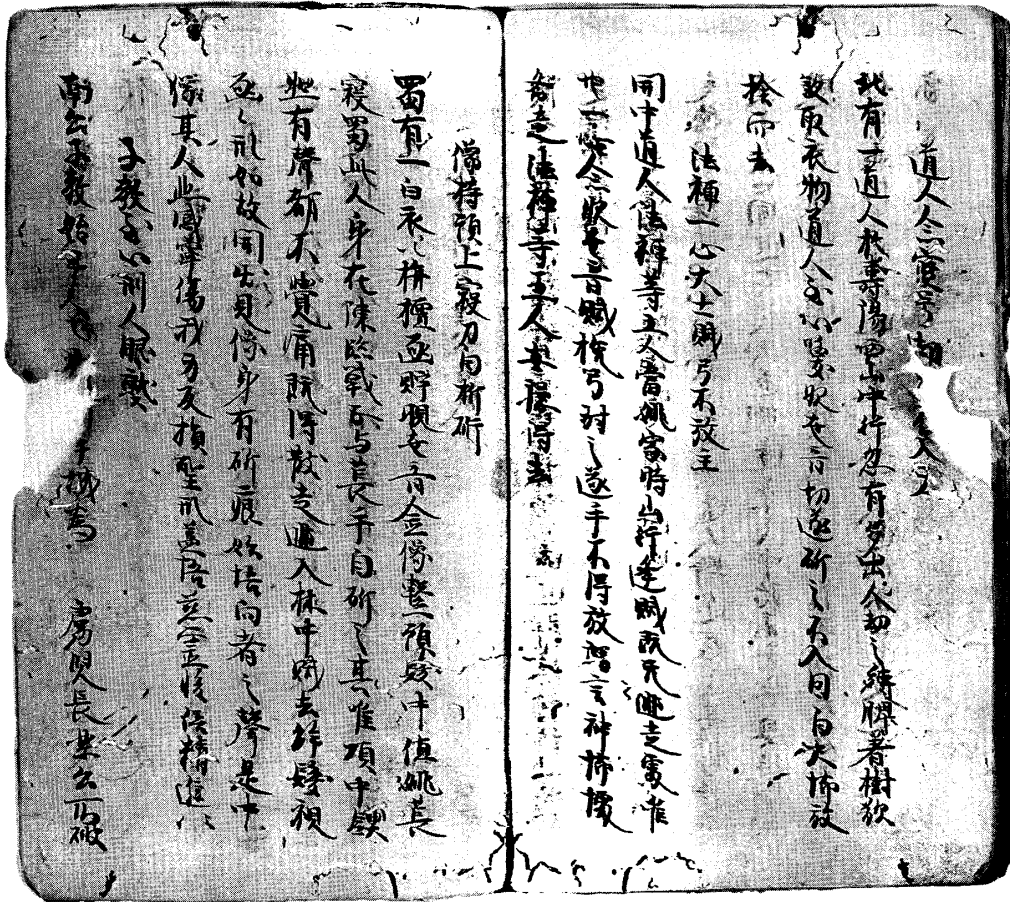 道人念
北有一道人於壽陽西山中行忽有劫出人劫之縛胛著樹欲
殺取衣物道人至心喚世音劫遂斫之不入因自大怖放
捨而去
法禪一心大士賊弓不放
開中道人法禪等五人當姚家時山行逢賊既无逃走處唯
念世音賊挽弓射之遂手不得放謂言神怖懼
走法禪等五人安隱得去
像持頂上刀自折斫
蜀有一白衣以栴檀函貯觀世音金像繫頂髮中值姚萇
寇蜀此人身在陳臨戰正與萇手自斫之其唯項中鏗
然有聲都不覺痛既得散走逃入林中賊去解髻視
函々形如故開出見像身有斫痕始悟向者之聲是中
像其人悲感寧傷我身反損聖形益悟倍精進
子敖至心刑人眼
南公子敖始人也城為 虜兒長樂公所破